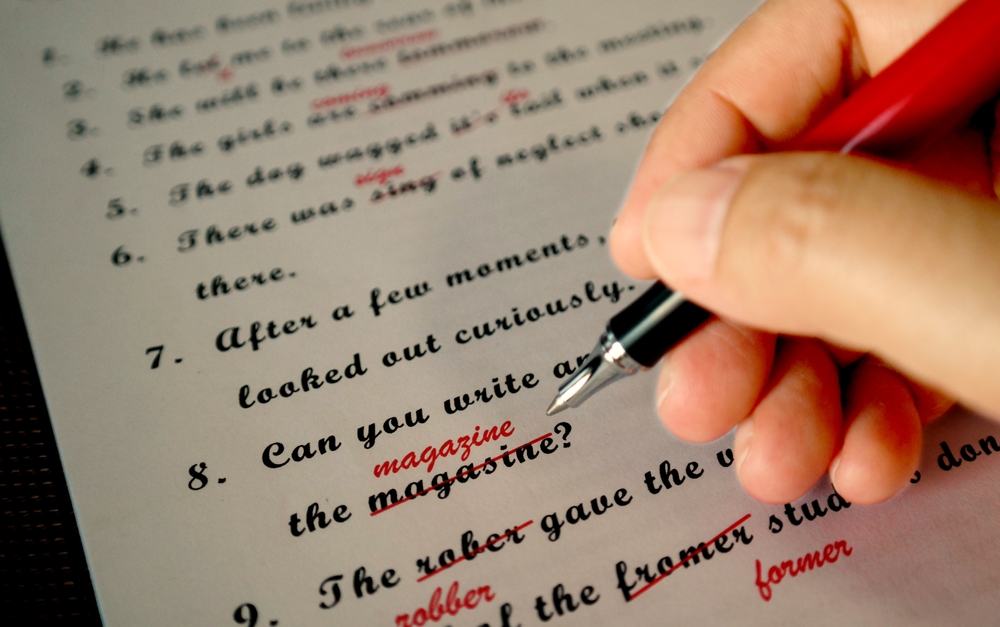 1. He has been
2. He me to the
3. She will be there
coming
4. The girls are comming to the meeting.
5. The dog wagged it's tail when it
sign
6. There was sing of neglect
there.
7. After a few moments,
looked out curiously.
8. Can you write
magazine
the magasine?
9. The rober gave the
robber
of the fromer
former